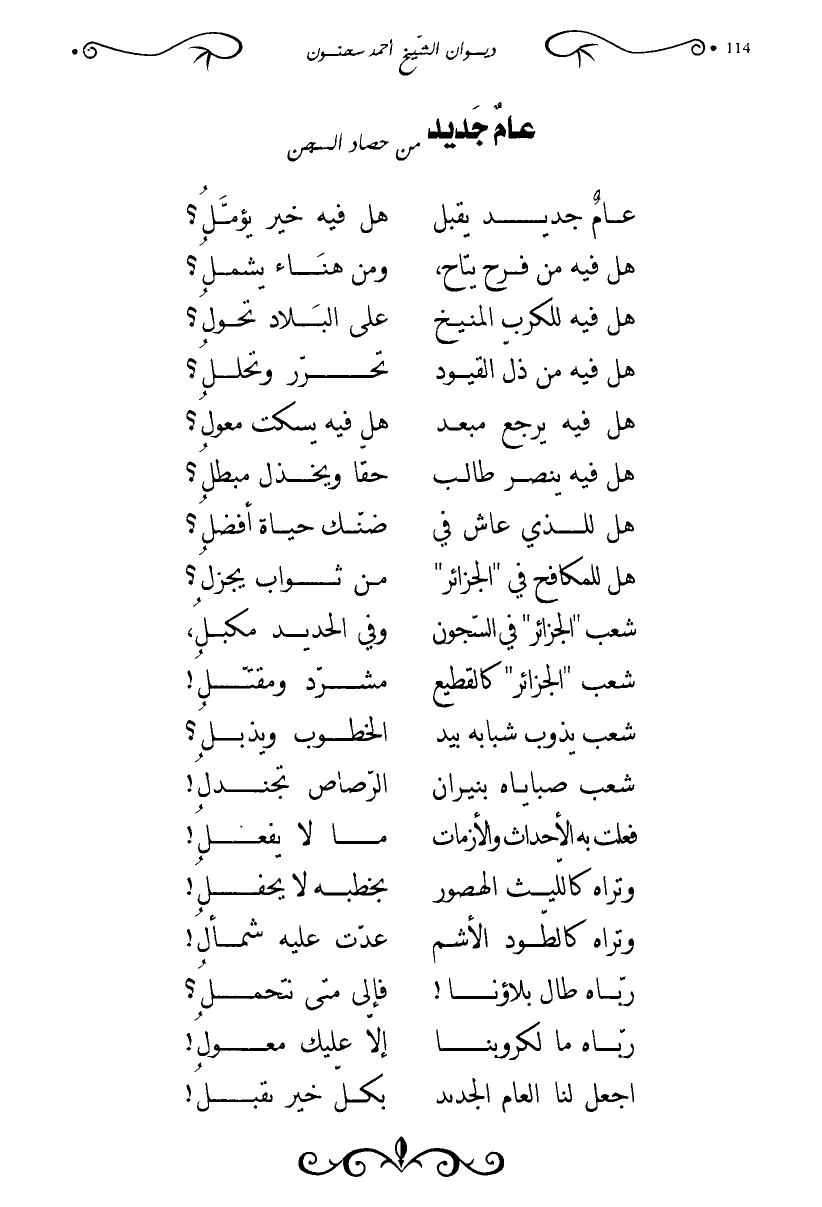 114 ديـوان الشّيخ أحمد سحنـون
عـامٌ جَديد من حصاد السجن
عـامٌ جديـــد يقبل هل فيه خير يؤمَّلُ؟
هل فيه من فـرح يتّاح، ومن هنَـاء يشملُ؟
هل فيه للكربِ المنيـخ على البَـلاد تحَولُ؟
هل فيه من ذل القيـود تحـــرّر وتحلـلُ؟
هل فيه يرجع مبعـد هل فيه يسكت معولُ؟
هل فيه ينصـر طالـب حقّا ويخـذل مبطلُ؟
هل للـذي عاش في ضنّـك حيـاة أفضلُ؟
هل للمكافح في "الجزائر" مـن ثـواب يجزلُ؟
شعب "الجزائر" في السّجون وفي الحديـد مكبـلُ،
شعب "الجزائر" كالقطيع مشـرّد ومقتّـلُ!
شعب يذوب شبابه بيد الخطـوب ويذبـلُ؟
شعب صباياه بنيـران الرّصاص تجنـدلُ!
فعلت به الأحداث والأزمات مـا لا يفعـلُ!
وتراه كاللّيـث الهصور بخطبـه لا يحفـلُ!
وتراه كالطّـود الأشم عدّت عليه شمـألُ!
ربّـاه طال بلاؤنـا ! فإلى متى نتحمـلُ؟
ربّـاه ما لكروبنـا إلاّ عليك معـولُ!
اجعل لنا العام الجديد بكـلّ خير يقبـلُ!